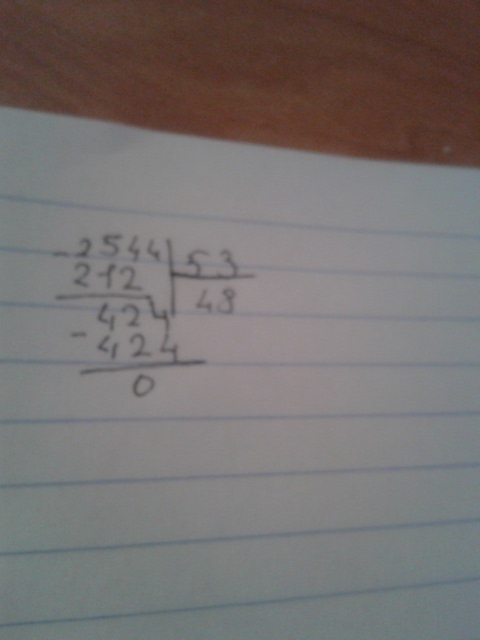 - 2544 | 53
212 | 48
424
- 424
0